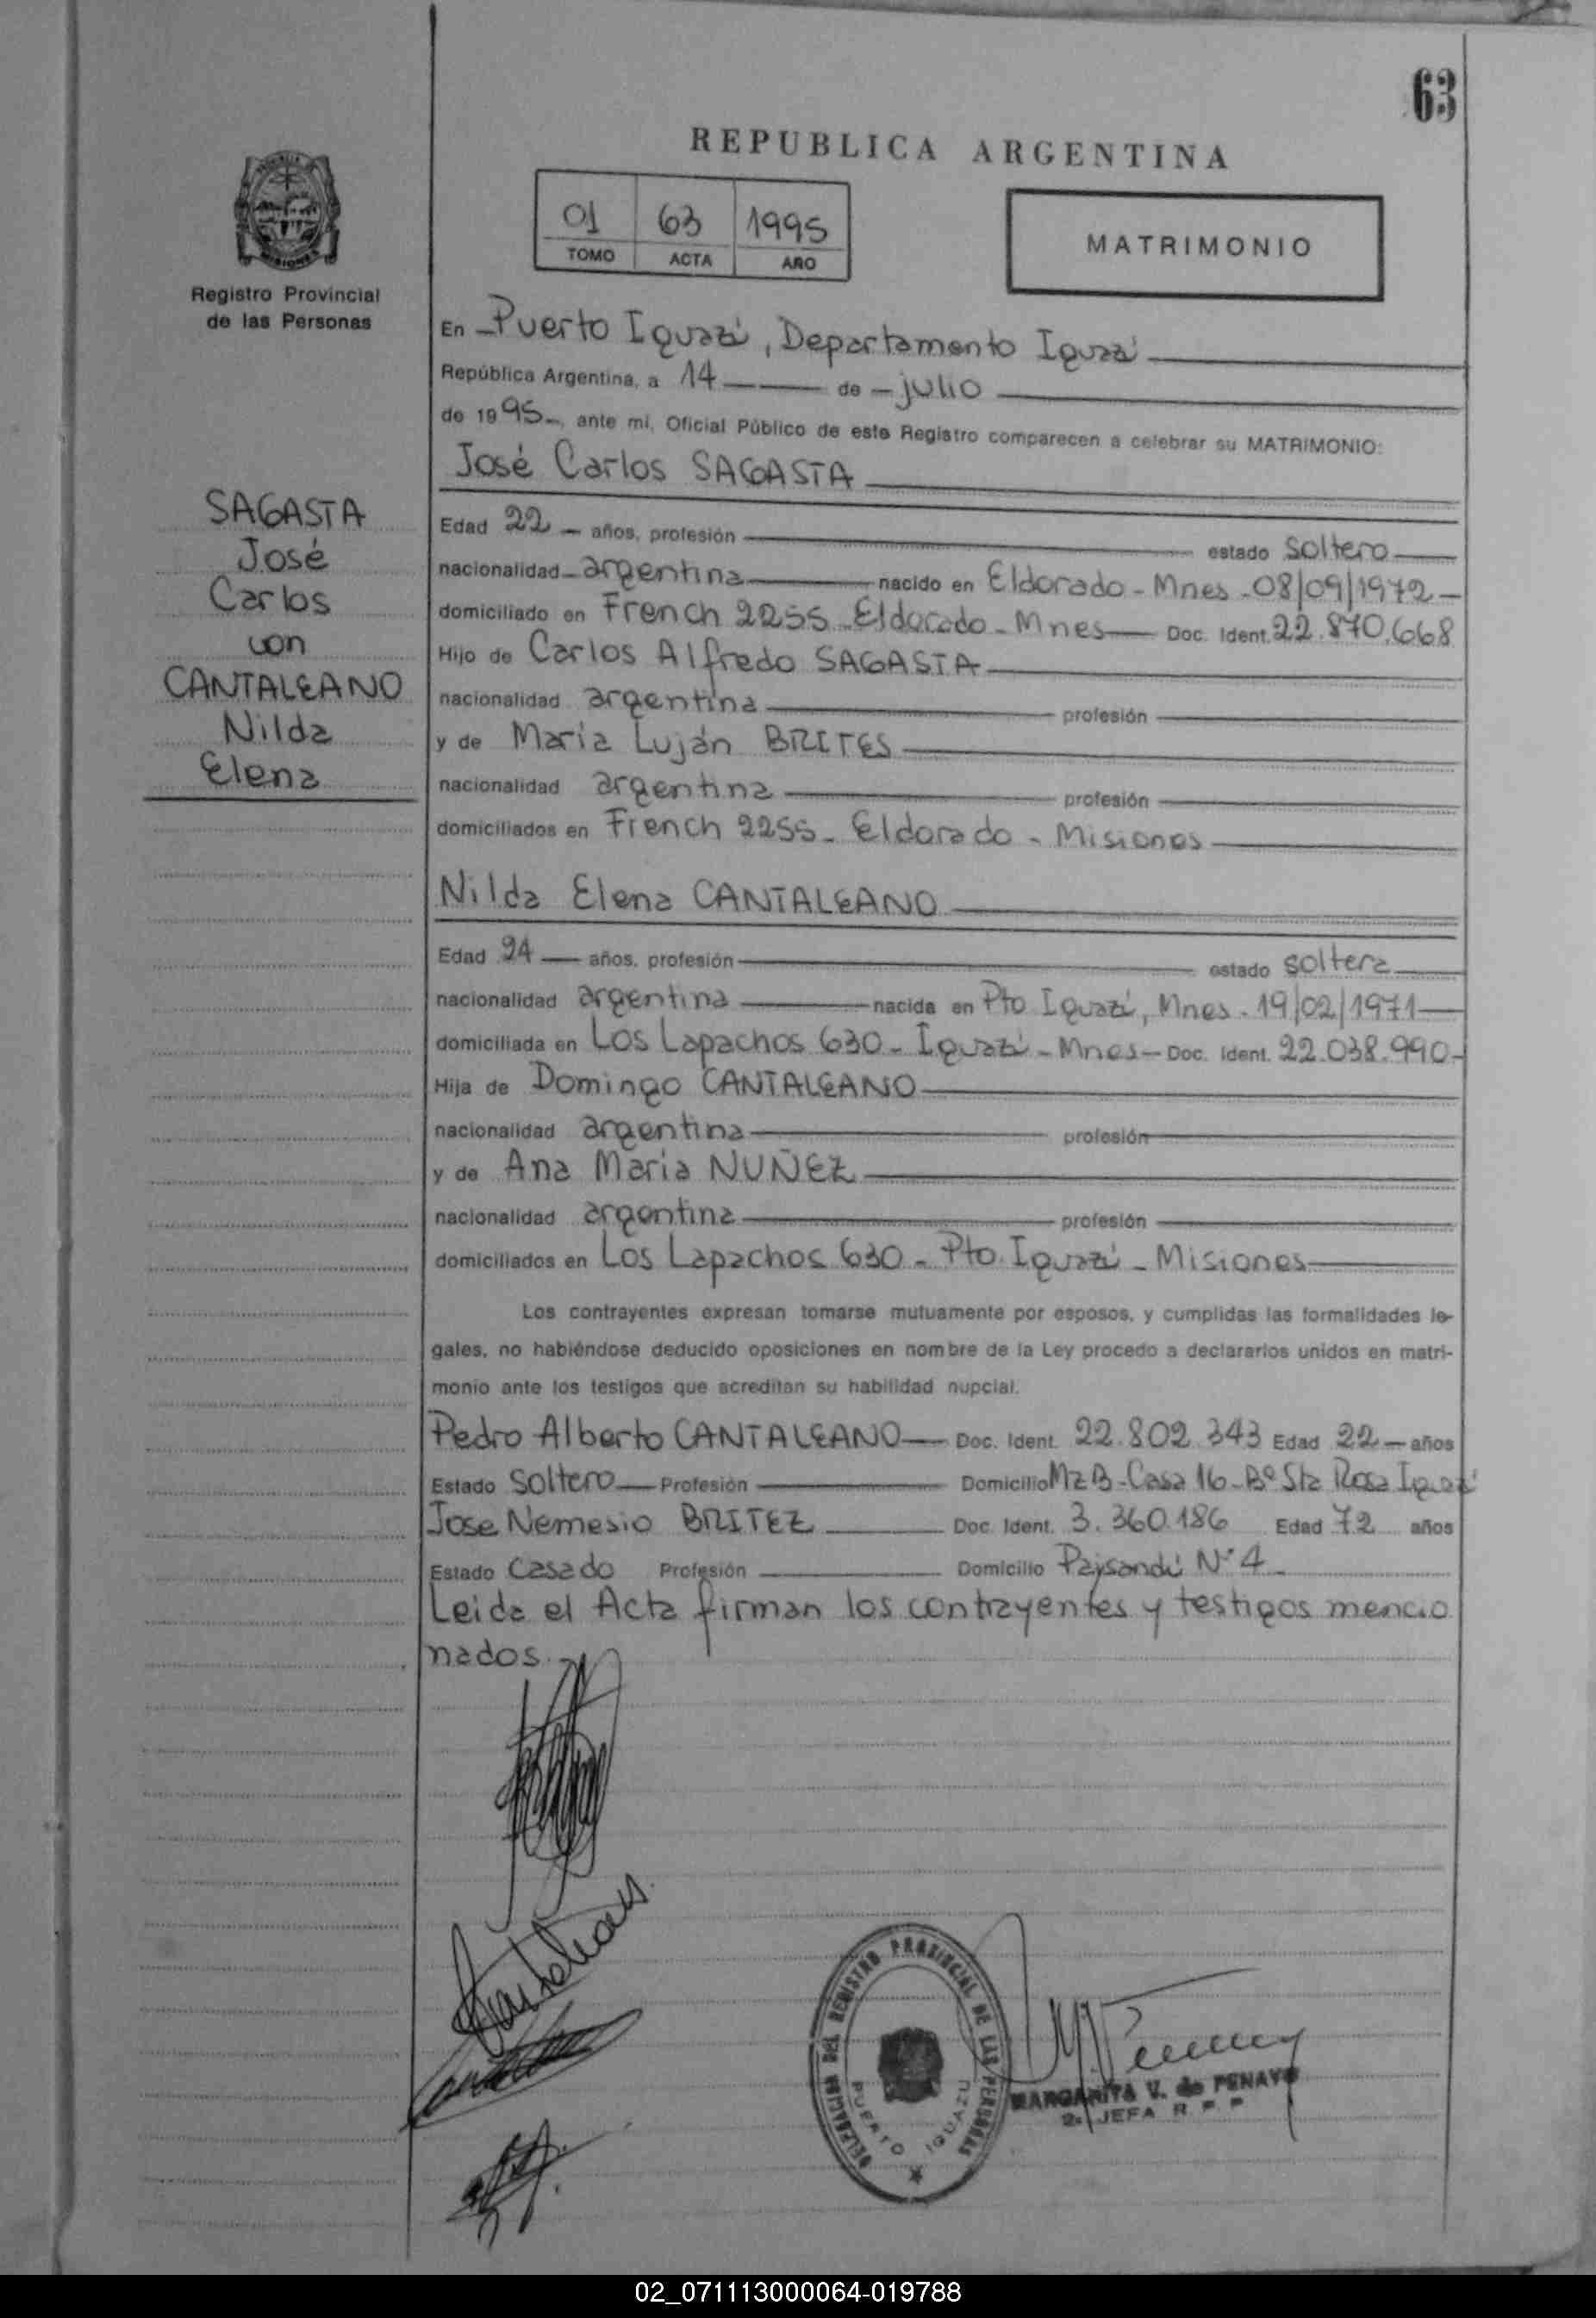 63
REPUBLICA ARGENTINA
01 63 1995
TOMO ACTA AÑO
MATRIMONIO
Registro Provincial
de las Personas
SAGASTA
José
Carlos
con
CANTALEANO
Nilda
Elena
En Puerto Iguazú, Departamento Iguazú
República Argentina, a 14 de julio
de 1995, ante mí, Oficial Público de este Registro comparecen a celebrar su MATRIMONIO:
José Carlos SAGASTA
Edad 22 años, profesión estado soltero
nacionalidad argentina nacido en Eldorado - Mnes - 08/09/1972
domiciliado en French 2255 - Eldorado - Mnes Doc. Ident. 22.870.668
Hijo de Carlos Alfredo SAGASTA
nacionalidad argentina profesión
y de María Luján BRITES
nacionalidad argentina profesión
domiciliados en French 2255 - Eldorado - Misiones
Nilda Elena CANTALEANO
Edad 24 años, profesión estado soltera
nacionalidad argentina nacida en Pto Iguazú, Mnes - 19/02/1971
domiciliada en Los Lapachos 630 - Iguazú - Mnes Doc. Ident. 22.038.990
Hija de Domingo CANTALEANO
nacionalidad argentina profesión
y de Ana María NUÑEZ
nacionalidad argentina profesión
domiciliados en Los Lapachos 630 - Pto. Iguazú - Misiones
Los contrayentes expresan tomarse mutuamente por esposos, y cumplidas las formalidades le-
gales, no habiéndose deducido oposiciones en nombre de la Ley procedo a declararlos unidos en matri-
monio ante los testigos que acreditan su habilidad nupcial.
Pedro Alberto CANTALEANO Doc. Ident. 22.802.343 Edad 22 años
Estado soltero Profesión Domicilio Mz B - Casa 16 - Bº Sta Rosa Iguazú
Jose Nemesio BRITEZ Doc. Ident. 3.360.186 Edad 72 años
Estado Casado Profesión Domicilio Paysandú Nº 4
Leida el Acta firman los contrayentes y testigos mencio
nados.
DELEGACION DEL REGISTRO PROVINCIAL DE LAS PERSONAS
PUERTO IGUAZU
MARGARITA V. de PENAYO
2ª JEFA R. P. P.
02_071113000064-019788